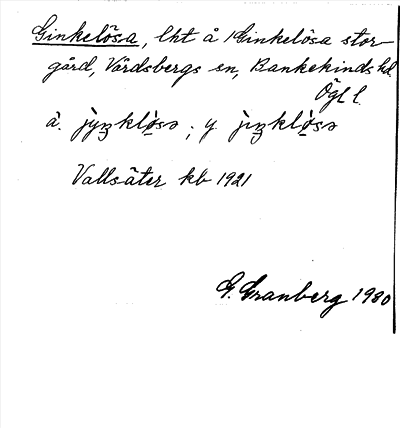 Ginkelösa, lht å Ginkelösa stor-
gård, Vårdsbergs sn, Bankekinds hd.
Ögl l.
ä. jyŋkløsə ; y. jiŋkløsə
Vallsäter kb 1921
G. Granberg 1930